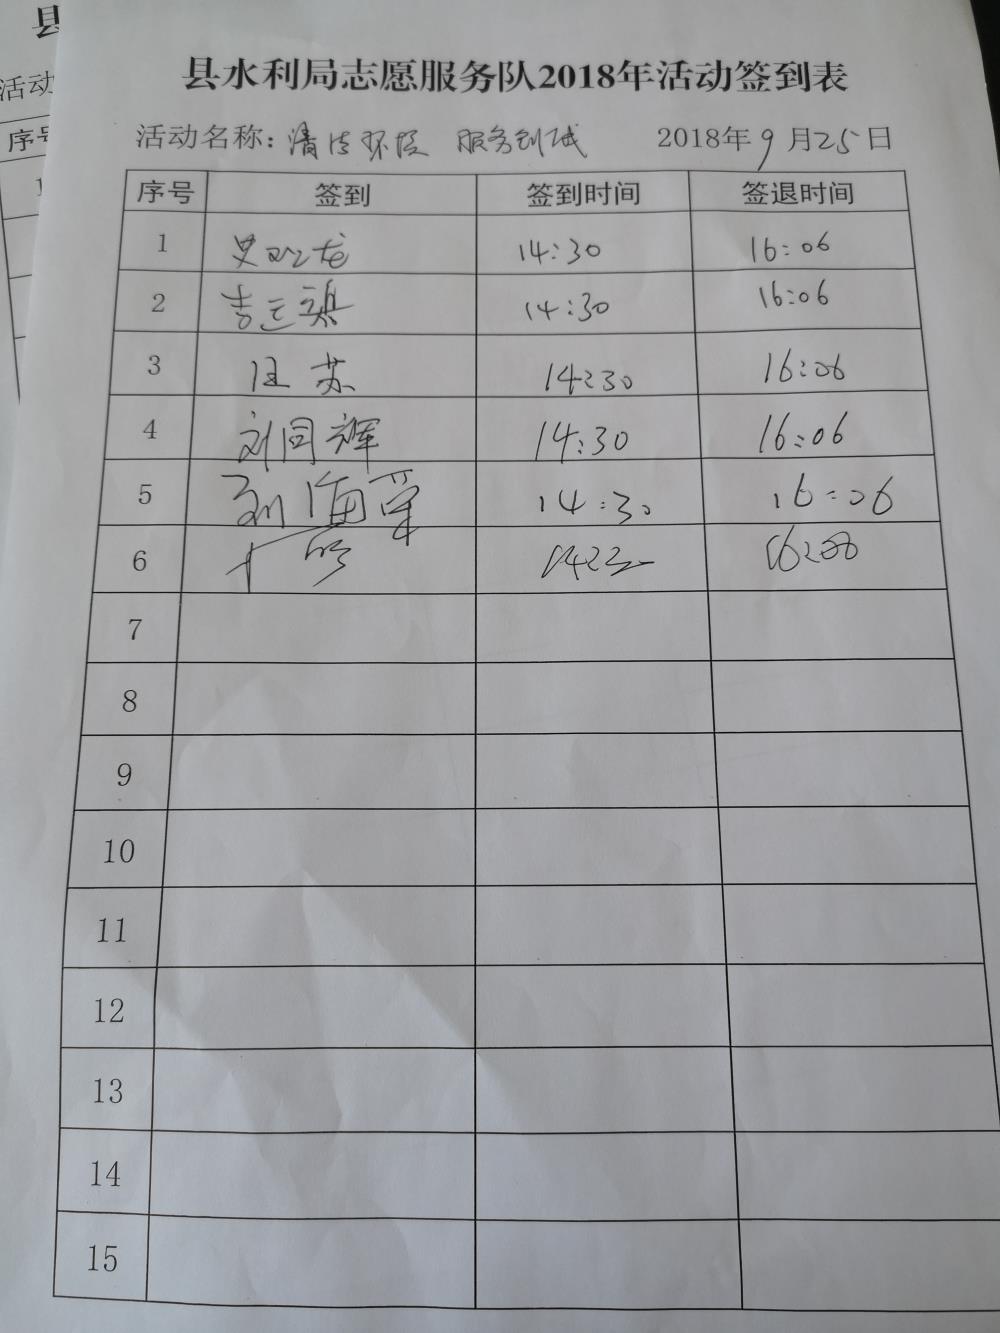 县
活动
序号
1
县水利局志愿服务队2018年活动签到表
活动名称: 清洁环境 服务创城 2018年9月25日
序号 签到 签到时间 签退时间
1 龙 14:30 16:06
2 吉 14:30 16:06
3 汪苏 14:30 16:06
4 刘同辉 14:30 16:06
5 刘海军 14:30 16:06
6
7
8
9
10
11
12
13
14
15